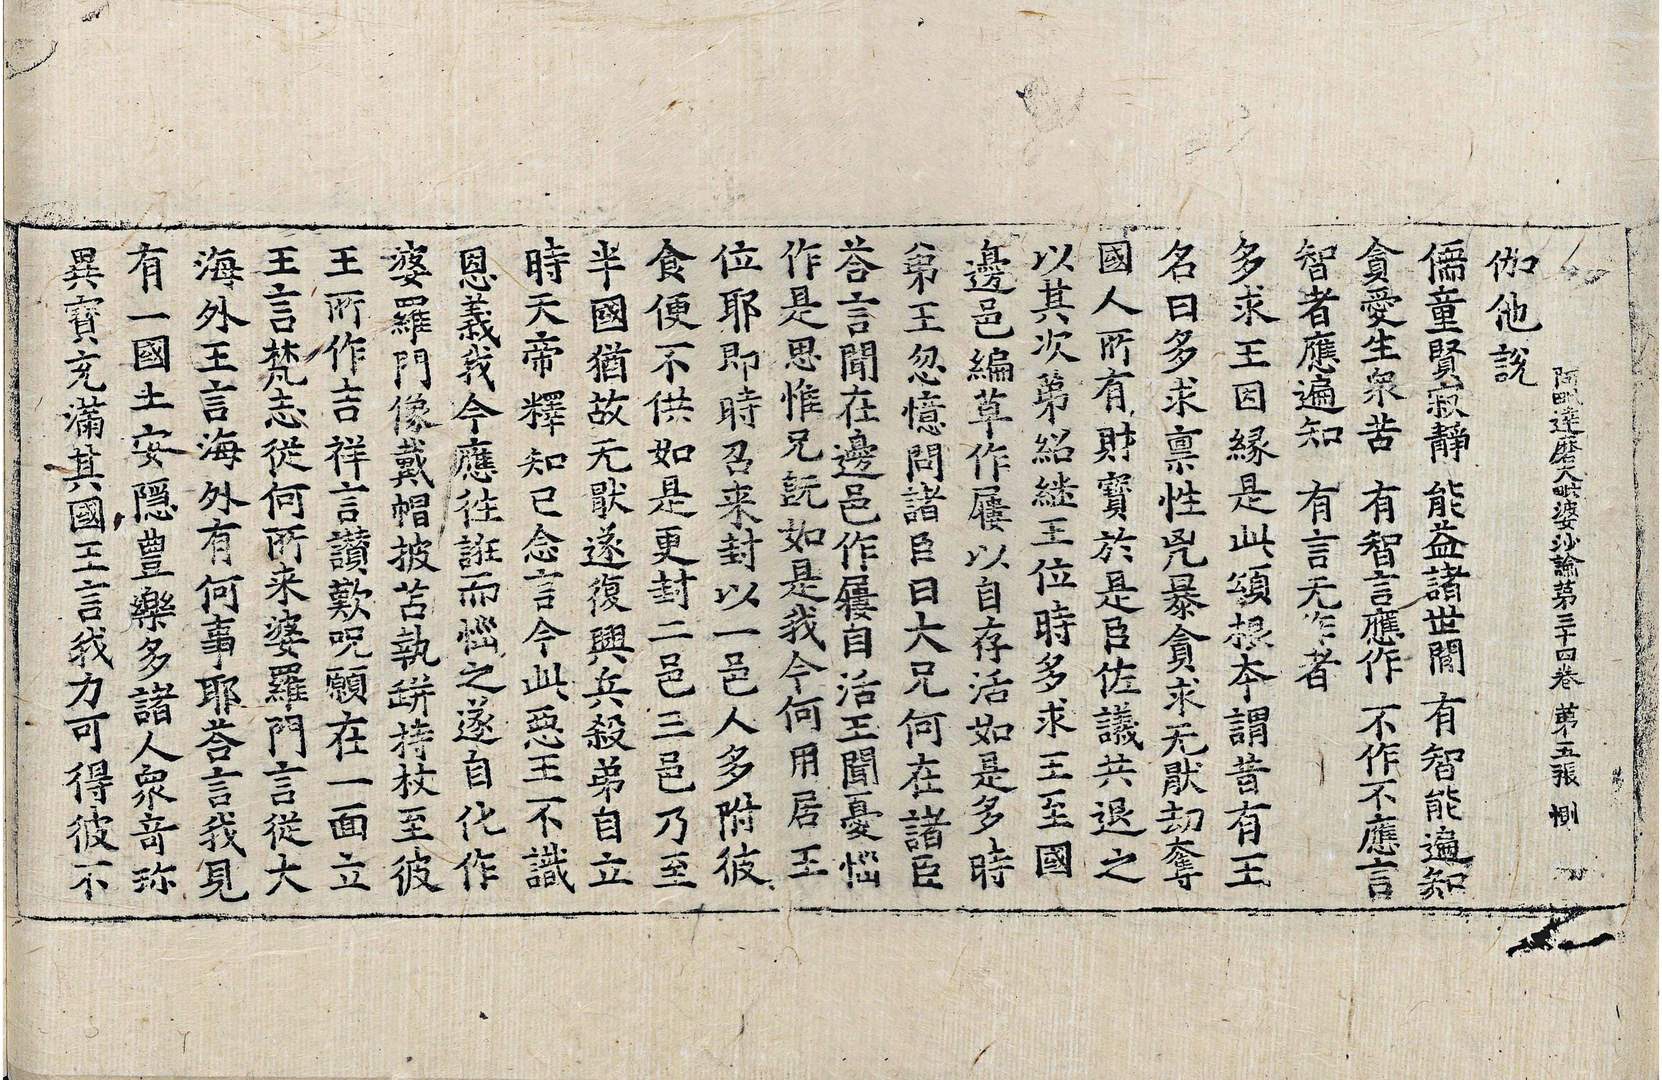 阿毗達磨大毗婆沙論第三十四卷 第五張 惻
伽他說
儒童賢寂靜 能益諸世間 有智能遍知
貪愛生衆苦 有智言應作 不作不應言
智者應遍知 有言无作者
多求王因緣是此頌根本謂昔有王
名曰多求禀性兇暴貪求无厭劫奪
國人所有財寶於是臣佐議共退之
以其次第紹継王位時多求王至國
邊邑編草作屨以自存活如是多時
弟王忽憶問諸臣曰大兄何在諸臣
荅言聞在邊邑作屨自活王聞憂惱
作是思惟兄旣如是我今何用居王
位耶即時召来封以一邑人多附彼
食便不供如是更封二邑三邑乃至
半國猶故无厭遂復興兵殺弟自立
時天帝釋知已念言今此惡王不識
恩義我今應往誑而惱之遂自化作
婆羅門像戴帽披苫執缾持杖至彼
王所作吉祥言讃歎呪願在一面立
王言梵志從何所来婆羅門言從大
海外王言海外有何事耶荅言我見
有一國土安隱豊樂多諸人衆竒珎
異寶充滿其國王言我力可得彼不